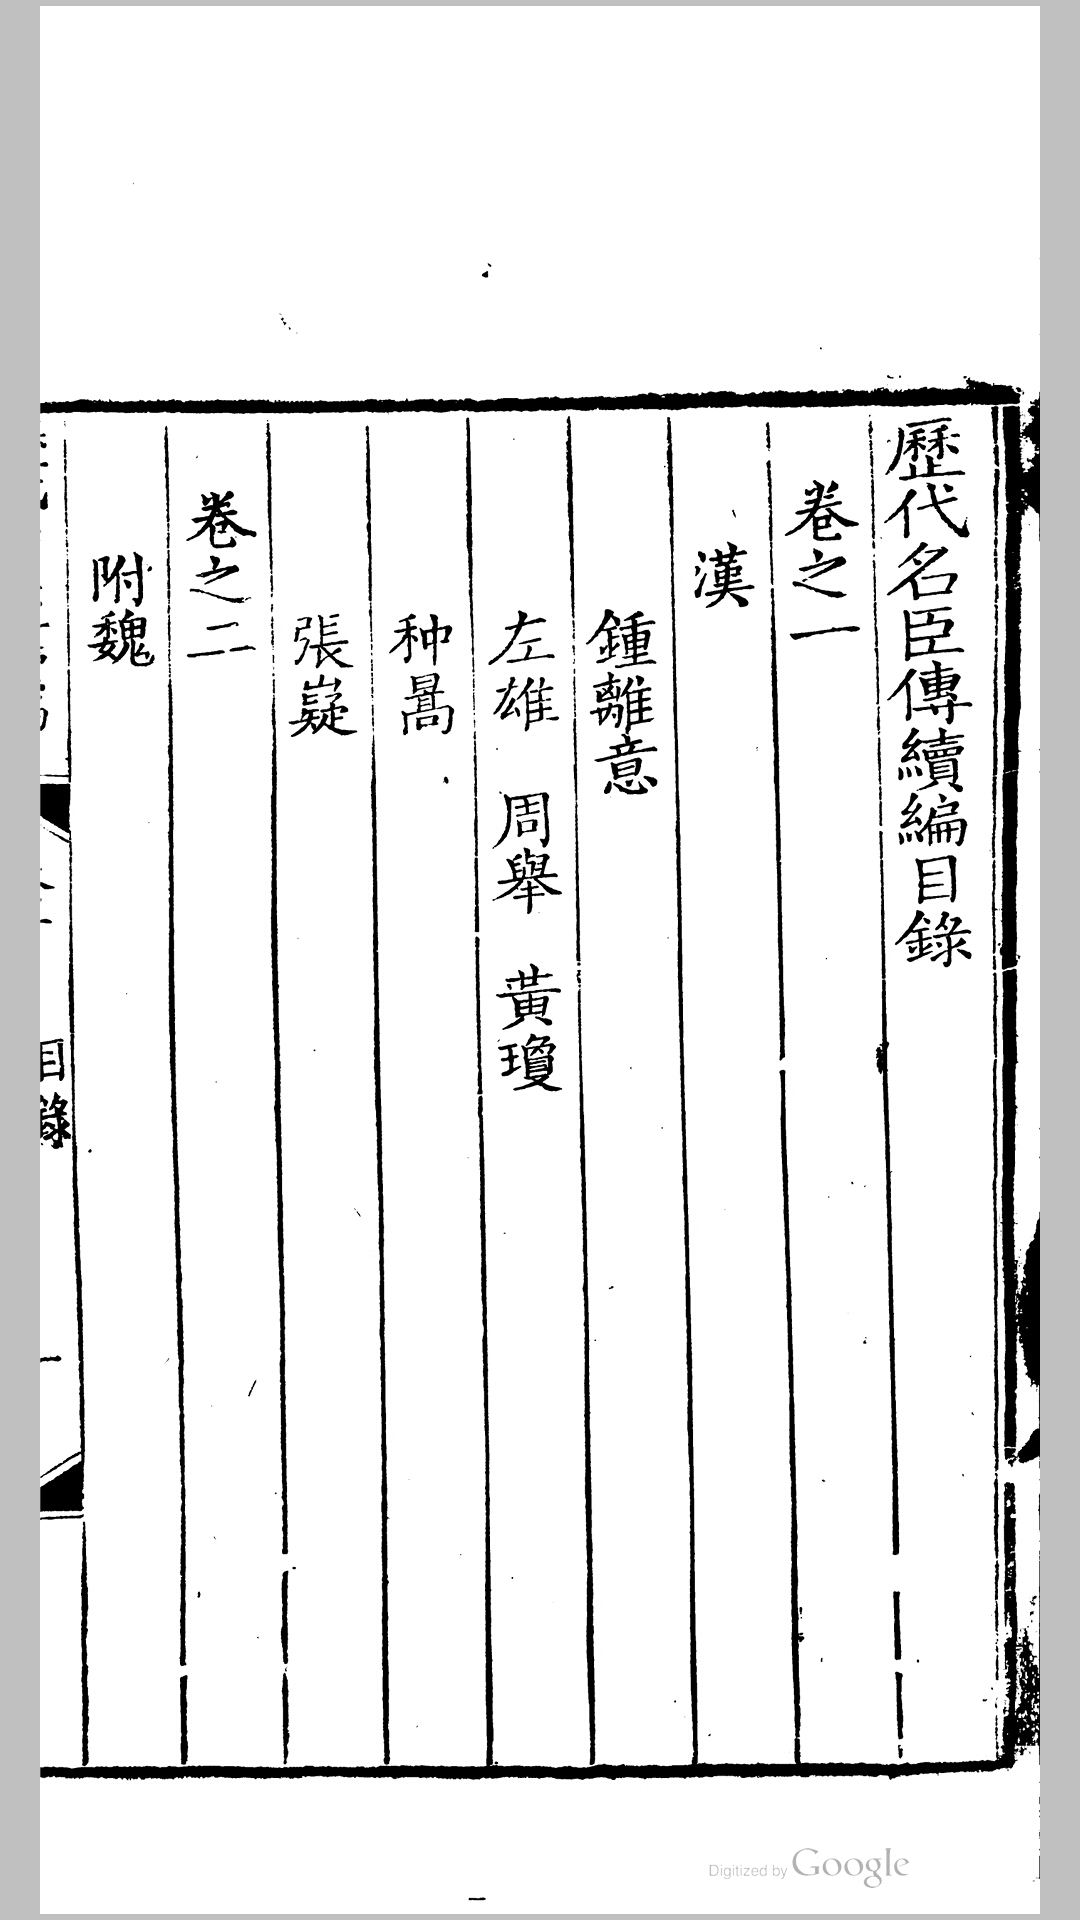 歷代名臣傳續編目錄
卷之一
漢
鍾離意
左雄 周舉 黃瓊
种暠
張嶷
卷之二
附魏
目錄
一
Digitized by Google